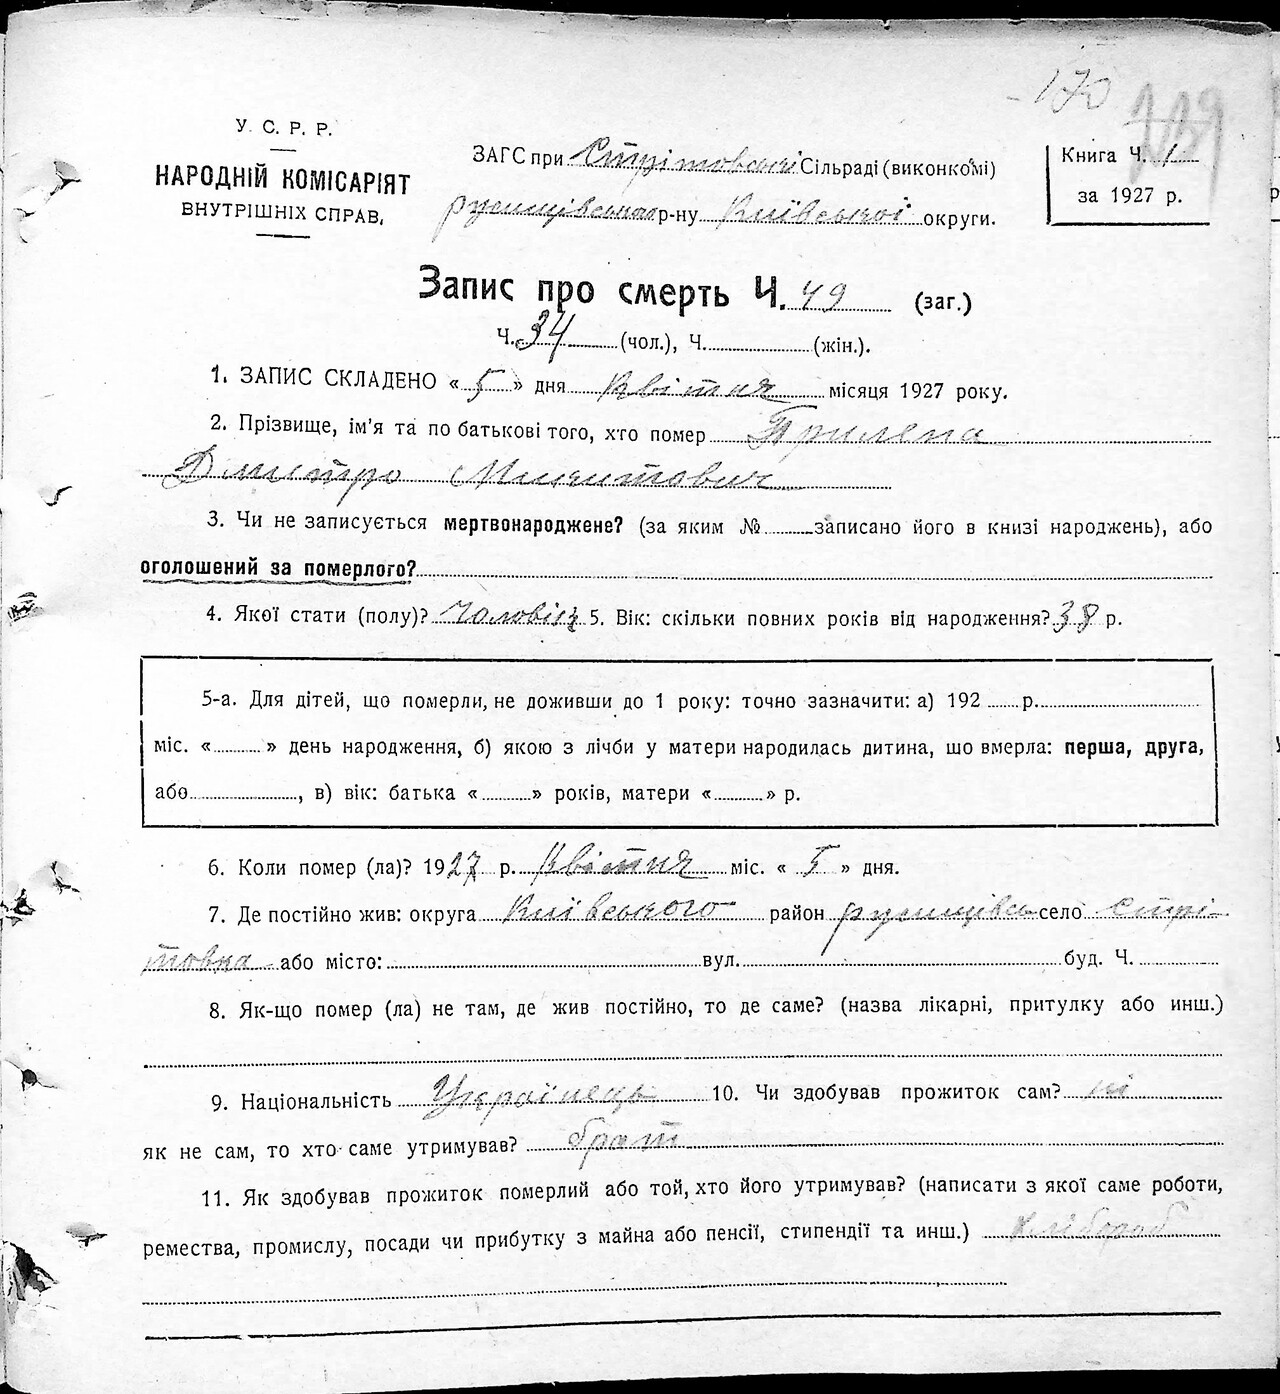 - 170
У. С. Р. Р.
НАРОДНІЙ КОМІСАРІЯТ
ВНУТРІШНІХ СПРАВ.
ЗАГС при Стрітовській Сільраді (виконкомі)
р-ну Київської округи.
Книга Ч. 1
за 1927 р.
Запис про смерть Ч. 49 (заг.)
Ч. 34 (чол.), Ч. (жін.).
1. ЗАПИС СКЛАДЕНО « 5 » дня Квітня місяця 1927 року.
2. Прізвище, ім'я та по батькові того, хто помер Прилепа
Дмитро Микитович
3. Чи не записується мертвонароджене? (за яким № записано його в книзі народжень), або
оголошений за померлого?
4. Якої стати (полу)? Чоловіч 5. Вік: скільки повних років від народження? 38 р.
5-а. Для дітей, що померли, не доживши до 1 року: точно зазначити: а) 192 р.
міс. « » день народження, б) якою з лічби у матери народилась дитина, що вмерла: перша, друга,
або , в) вік: батька « » років, матери « » р.
6. Коли помер (ла)? 1927 р. Квітня міс. « 5 » дня.
7. Де постійно жив: округа Київського район село Стрі-
товка або місто: вул. буд. Ч.
8. Як-що помер (ла) не там, де жив постійно, то де саме? (назва лікарні, притулку або инш.)
9. Національність Українець 10. Чи здобував прожиток сам? ні
як не сам, то хто саме утримував? брат
11. Як здобував прожиток померлий або той, хто його утримував? (написати з якої саме роботи,
ремества, промислу, посади чи прибутку з майна або пенсії, стипендії та инш.) Хлібороб